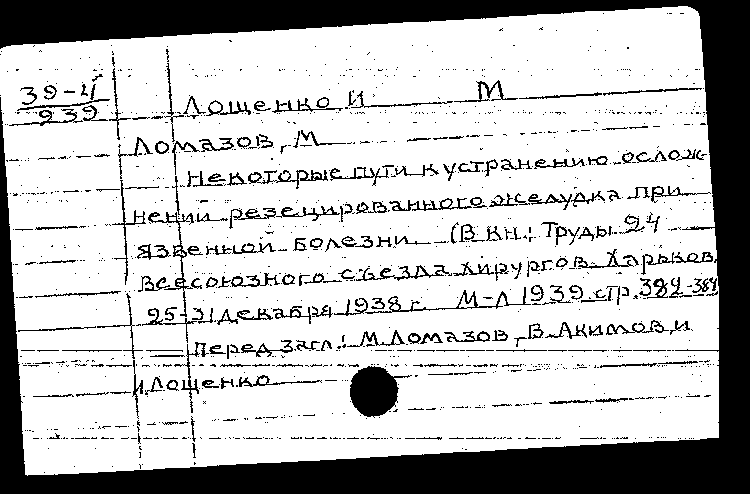 39-4
939
Лощенко И М
Ломазов, М
Некоторые пути к устранению ослож-
нений резецированного желудка при
язвенной болезни. (В кн.: Труды 24
всесоюзного съезда хирургов. Харьков,
25-31 декабря 1938 г. М-Л 1939 стр. 382-384
Перед загл.: М. Ломазов, В. Акимов, и
И. Лощенко